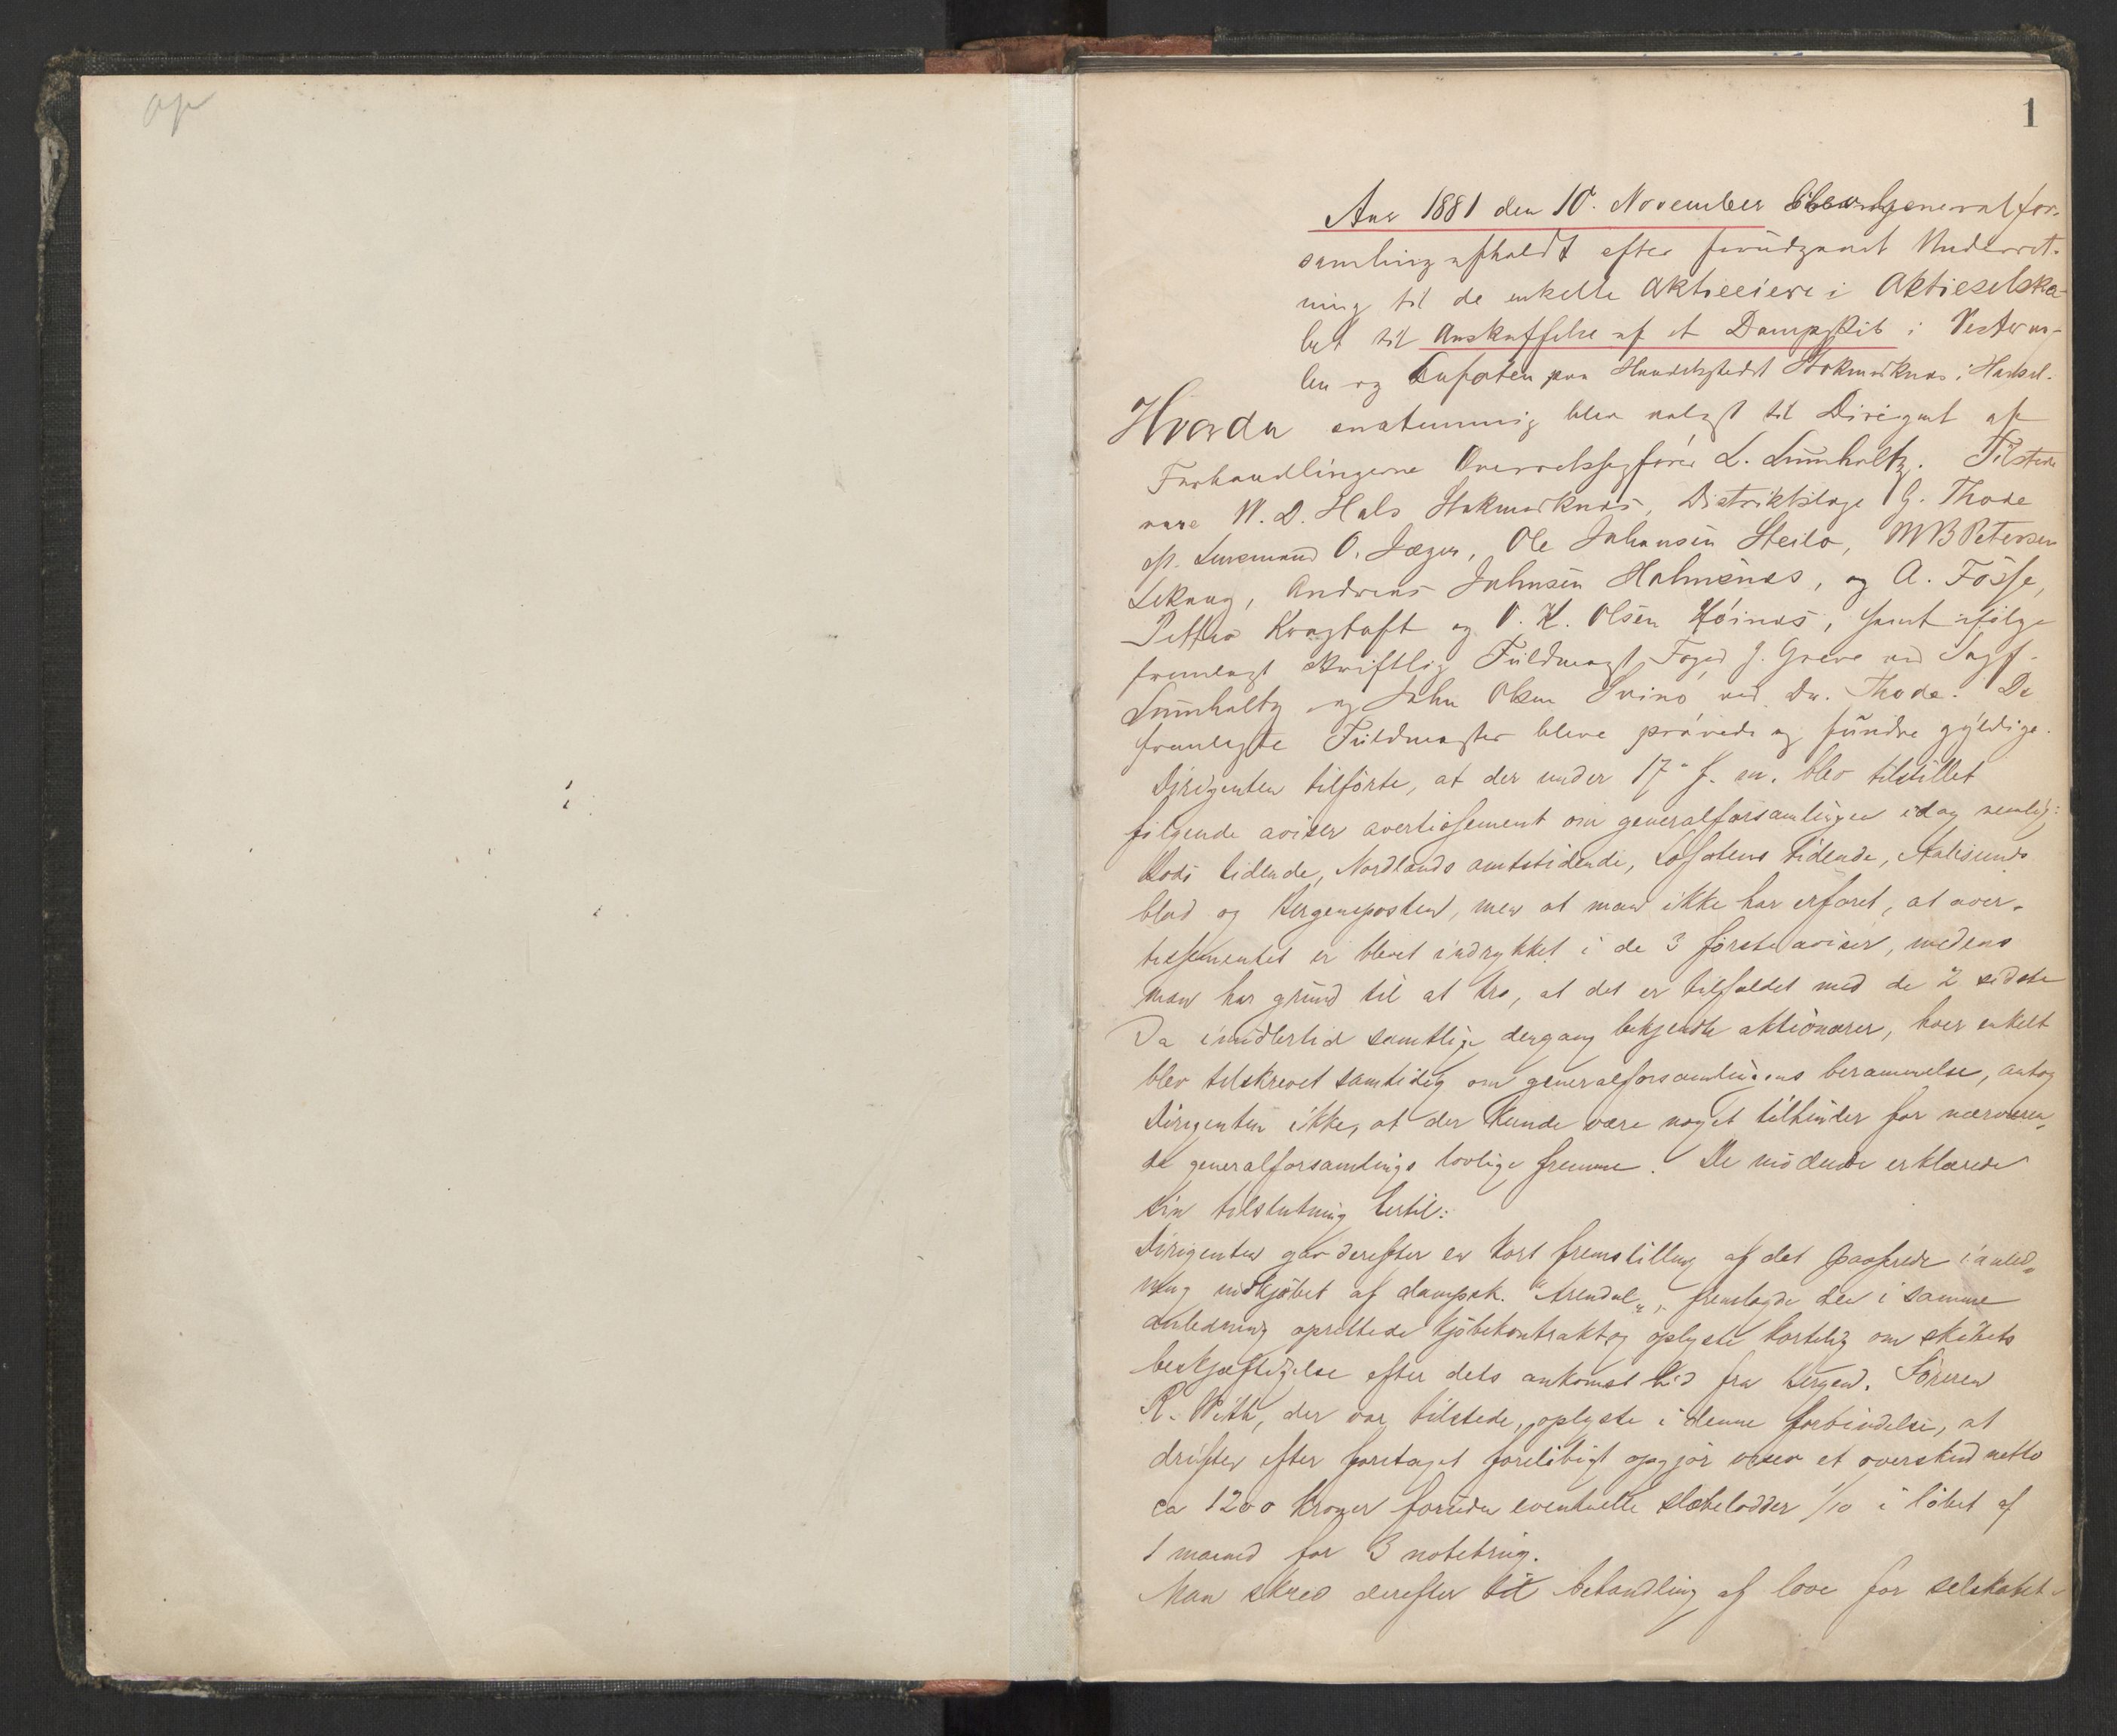 1
Aar 1881 den 10. November blev generalfor-
samling afholdt efter forudgaaet Underret-
ning til de enkelte Aktieeiere i Aktieselska-
bet til Anskaffelse af et Dampskib i Vesteraa-
len og Lofoten paa Handelsstedet Stokmarknæs i Hadsel.
Hvorda enstemmig blev valgt til Dirigent af
Forhandlingerne Overretssagfører L. Lumholtz. Tilstede
vare W. D. Hals Stokmarknæs, Distriktslæge G. Thode
Lensmand O. Jæger, Ole Johansen Steilo, M B Petersen
Lekang, Andreas Johnsen Holmenæs, og A. Fosse,
Petter Kragtoft og O. K. Olsen Høinæs, samt ifølge
fremlagt skriftlig Fuldmagt, Foged J. Greve ved Sagf.
Lumholtz og John Olsen Svino ved Dr. Thode. De
fremlagte Fuldmagter bleve prøvede og fundne gyldige.
Dirigenten tilførte, at der under 17de f. m. blev tilstillet
følgende aviser avertissement om generalforsamlingen idag nemlig:
Bodø tidende, Nordlands amtstidende, Lofotens tidende, Aalesunds
blad og Bergensposten, men at man ikke har erfaret, at aver-
tissementet er blevet indrykket i de 3 første aviser, medens
man har grund til at tro, at det er tilfældet med de 2 sidste
Da imidlertid samtlige dengang bekjendte aktionærer, hver enkelt
blev tilskrevet samtidig om generalforsamlingens berammelse, antog
Dirigenten ikke, at der kunde være noget tilhinder for nærværen-
de generalforsamlings lovlige fremme. De mødende erklærede
sin tilslutning hertil:
Dirigenten gav derefter en kort fremstilling af det passerede i anled-
ning indkjøbet af dampsk. "Arendal", fremlagde den i samme
anledning oprettede kjøbekontrakt og oplyste kortelig om skibets
beskjæftigelse efter dets ankomst hid fra Bergen. Føreren
R. With, der var tilstede, oplyste i denne forbindelse, at
driften efter foretaget foreløbigt opgjør viser et overskud netto
ca 1200 kroner foruden eventuelle slæbelodder 1/10 i løbet af
1 maaned for 3 notebrug.
Man skred derefter til behandling af love for selskabet